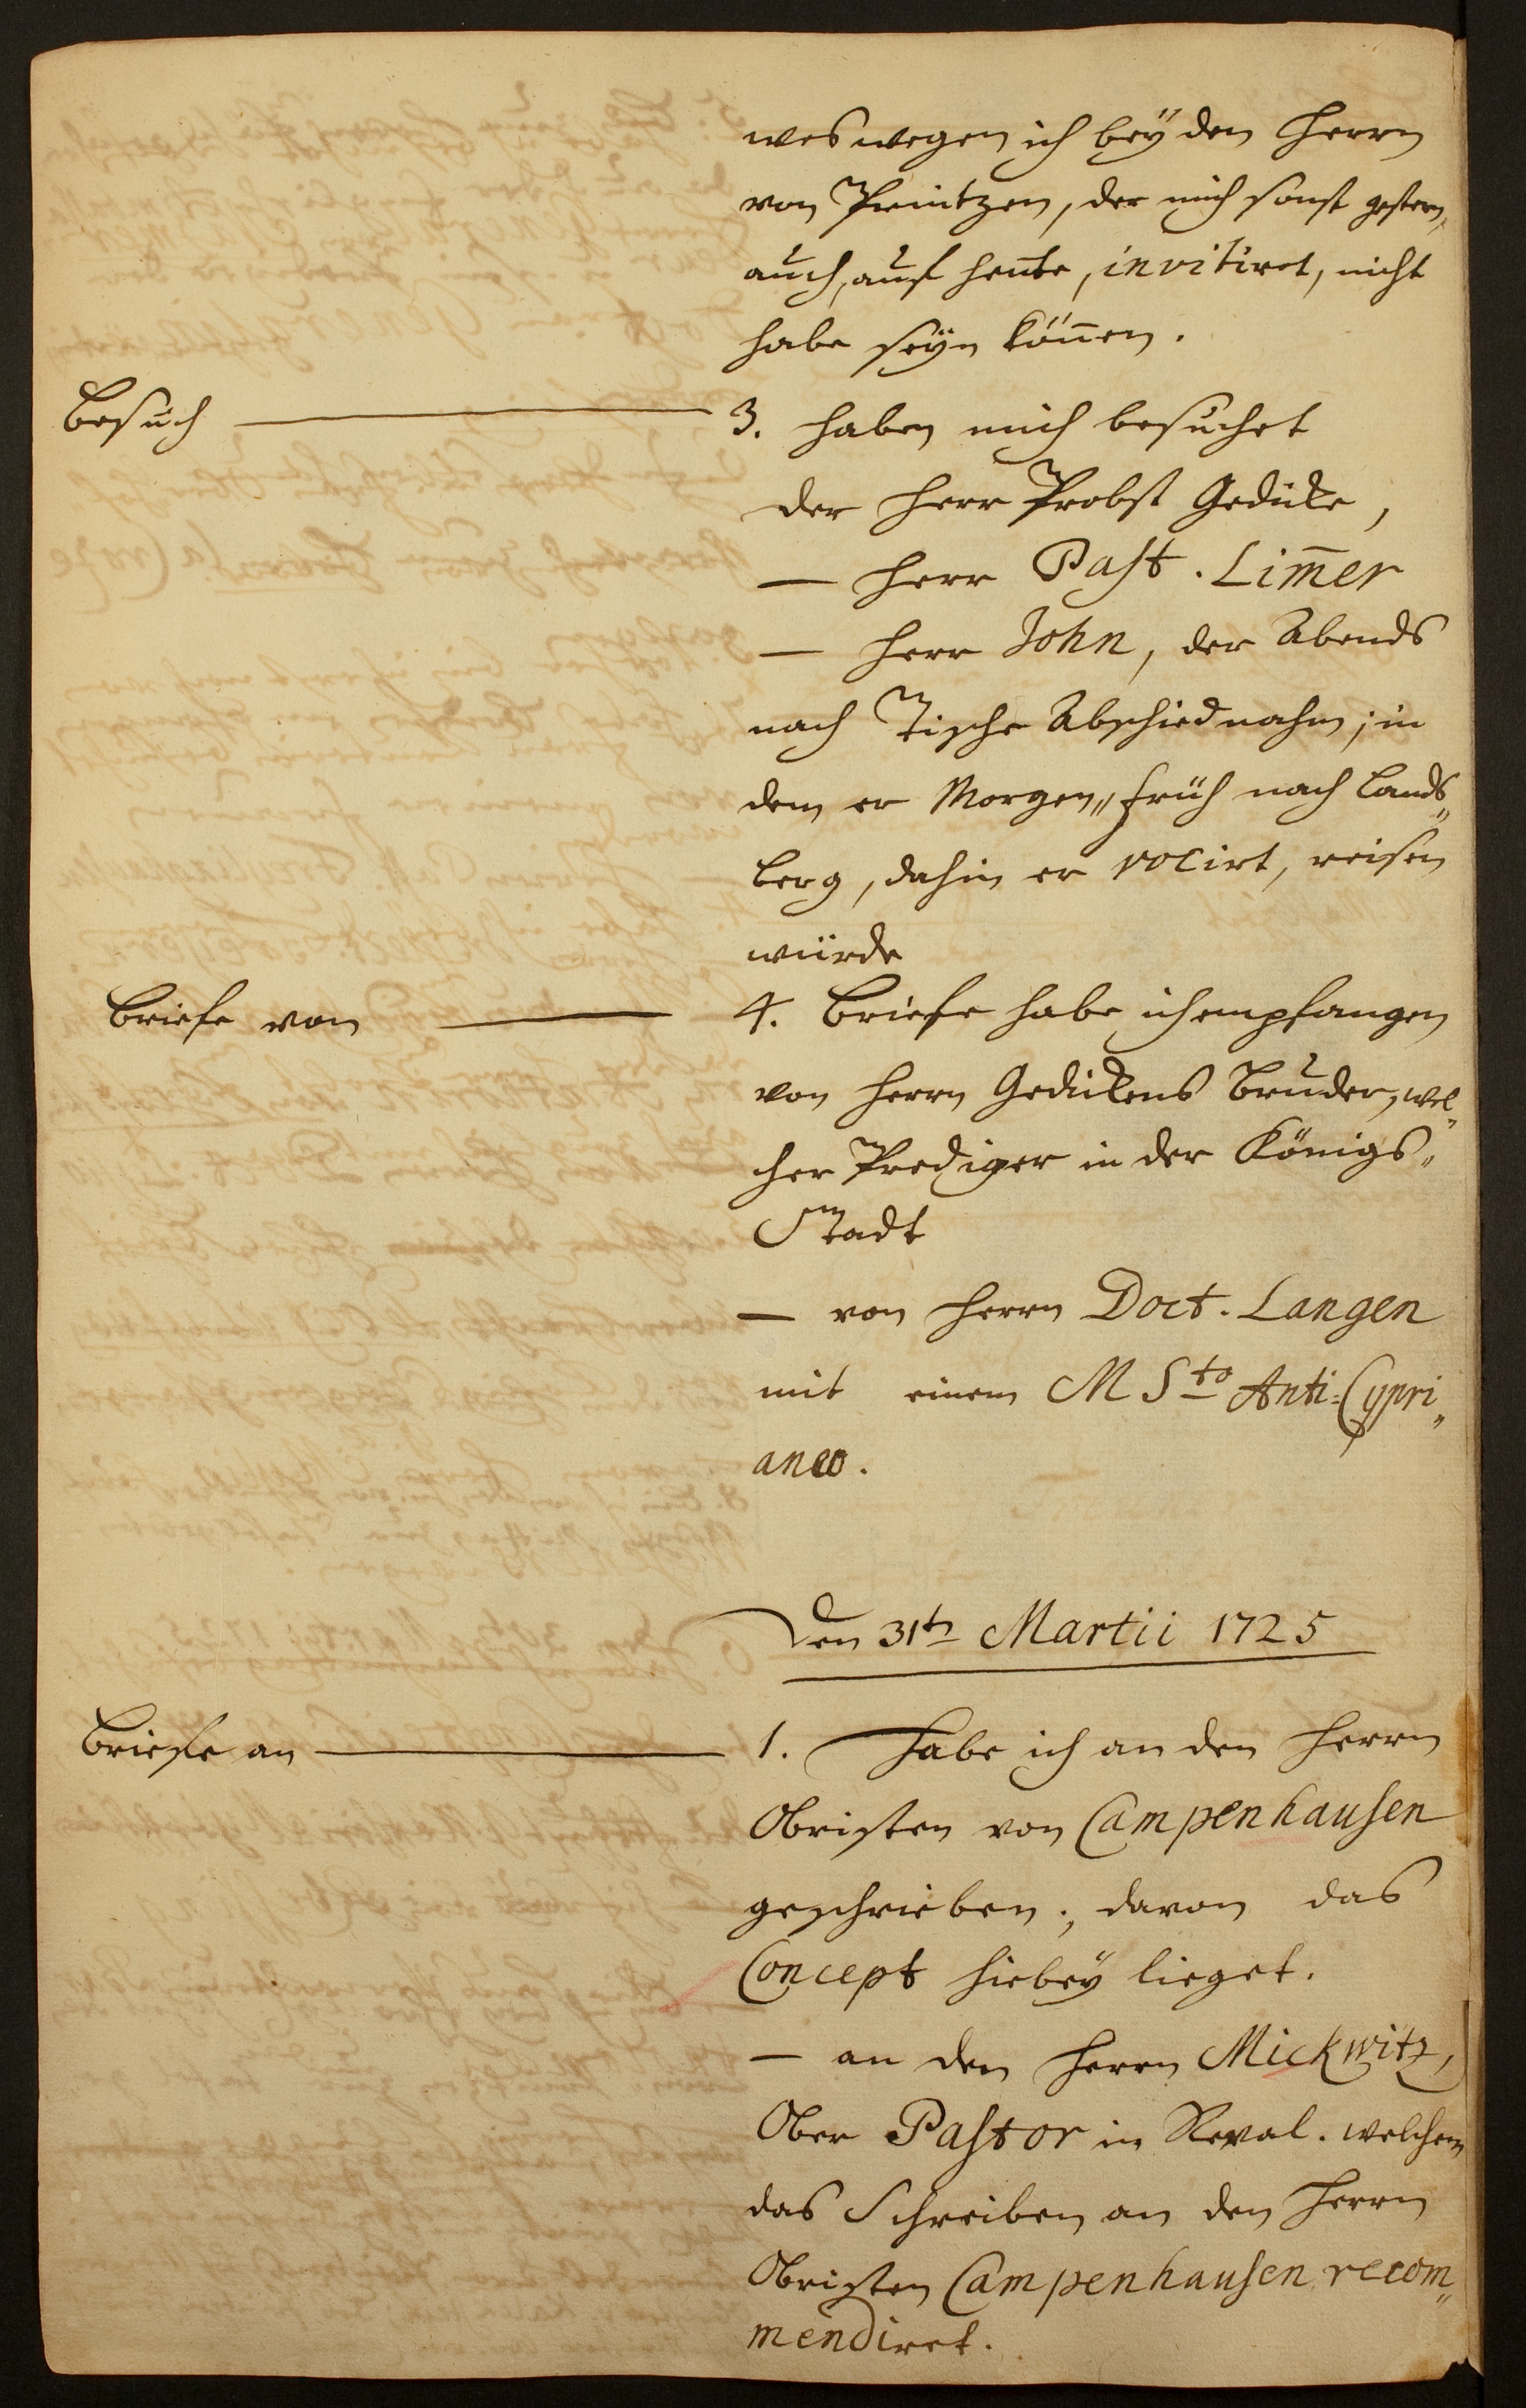 weswegen ich bey den Herrn
von Printzen, der mich sonst gestern,
auch, auf heute, invitiret, nicht
habe seyn können.
Besuch — 3. haben mich besuchet
der Herr Probst Gedicke,
— Herr Past. Lim̄er
— Herr John, der Abends
nach Tische Abschied nahm; in
dem er Morgen„ früh nach Lands„
berg, dahin er vocirt, reisen
würde
Briefe von — 4. Briefe habe ich empfangen
von Herrn Gedickens Bruder, wel„
cher Prediger in der Königs„
Stadt
— von Herrn Doct. Langen
mit einem MSto Anti-Cypri„
aneo.
Den 31tn Martii 1725
Briefe an — 1. Habe ich an den Herrn
Obristen von Campenhausen
geschrieben; davon das
Concept hiebey lieget.
— an den Herrn Mickwitz,
Ober Pastor in Reval. welchem
das Schreiben an den Herrn
Obristen Campenhausen recom„
mendiret.